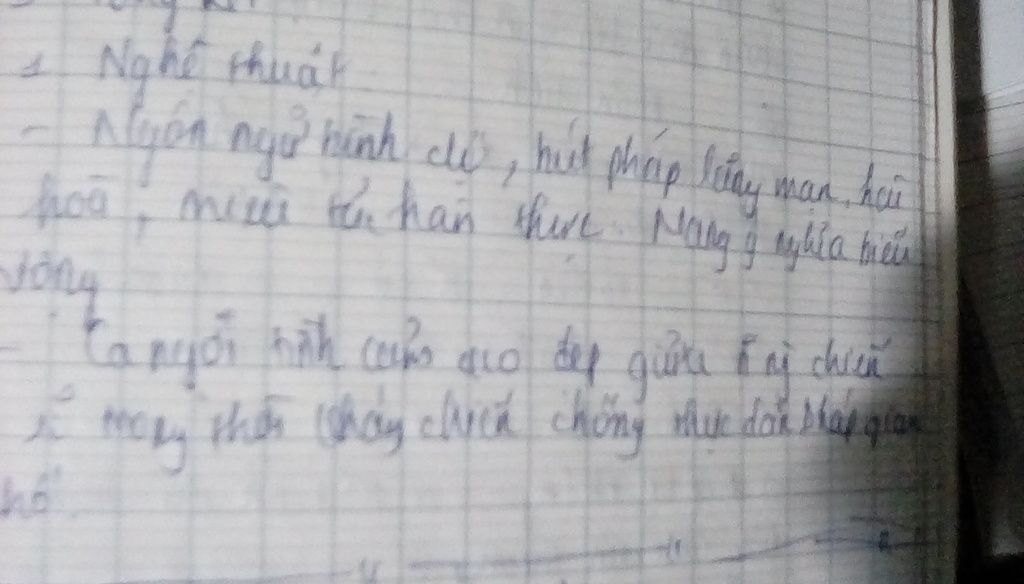 1 Nghệ thuật
- Ngôn ngữ bình dị, bút pháp lãng mạn, hài
hoà, miêu tả hiện thực. Mang ý nghĩa biểu
- Ca ngợi tình cảm cao đẹp giữa chiến
trong thời kháng chiến chống thực dân Pháp gian
khổ.